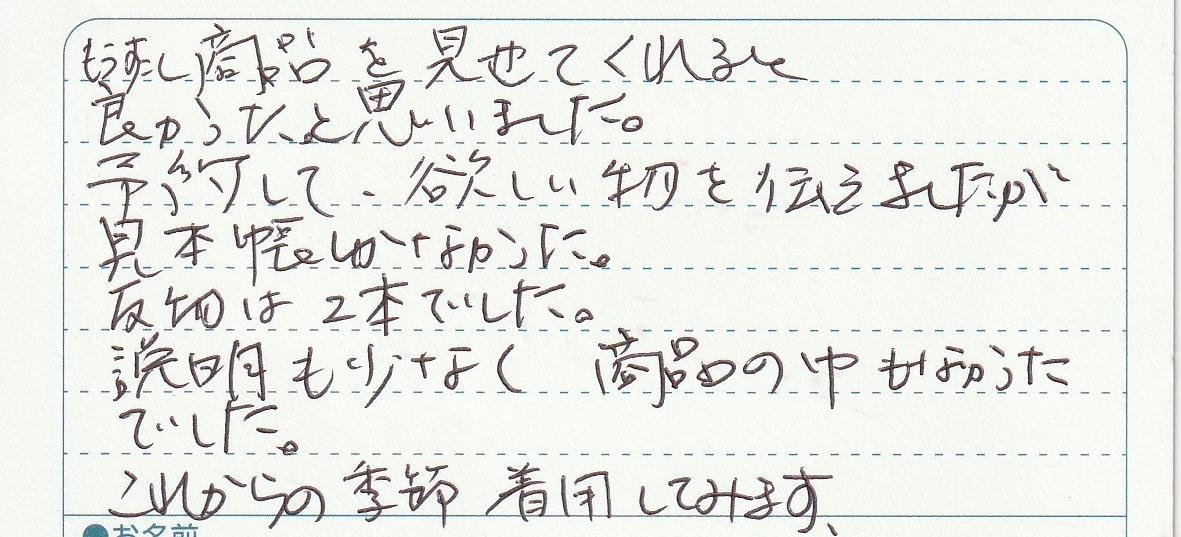 もうすこし商品を見せてくれると
良かったと思いました。
予約して、欲しい物を伝えましたが
見本帳しかなかった。
反物は2本でした。
説明も少なく 商品の中もなかった
でした。
これからの季節 着用してみます、
●お名前